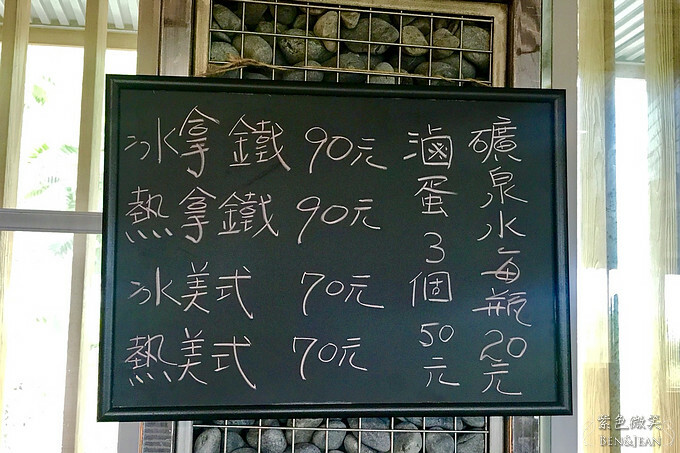 冰拿鐵 90元
熱拿鐵 90元
冰美式 70元
熱美式 70元
滷蛋3個50元
礦泉水每瓶20元
紫色微笑
BEN&JEAN